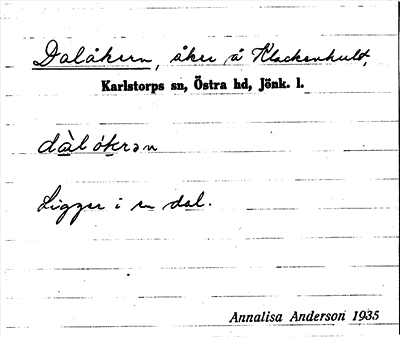 Dalåkern, åker å Klackenhult,
Karlstorps sn, Östra hd, Jönk. l.
dàlåkərən
Ligger i en dal.
Annalisa Anderson 1935